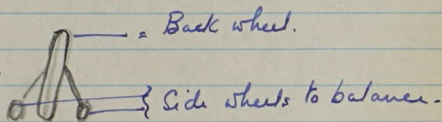 = Back wheel.
} Side wheels to balance.